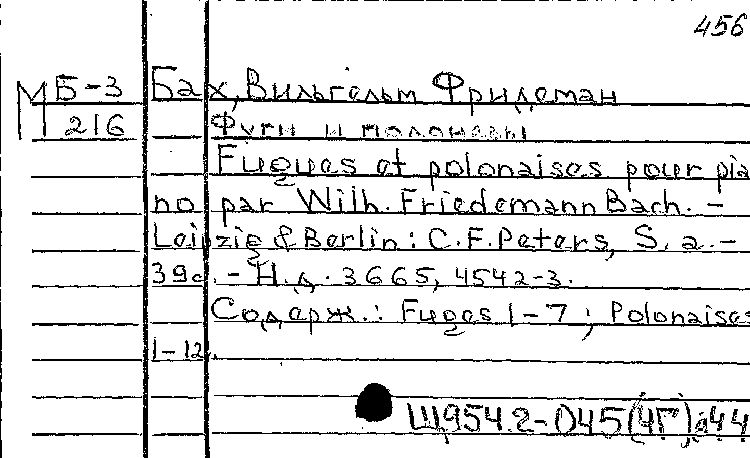 456
М Б-3 Бах, Вильгельм Фридеман
216 Фуги и полонезы
Fugues et polonaises pour pia
no par Wilh. Friedemann Bach. -
Leipzig & Berlin: C.F.Peters, S. a. -
39с. - Н.д. 3665, 4542-3.
Содерж.: Fuges 1-7; Polonaises
1-12.
Щ954.2-045(4Г)я44